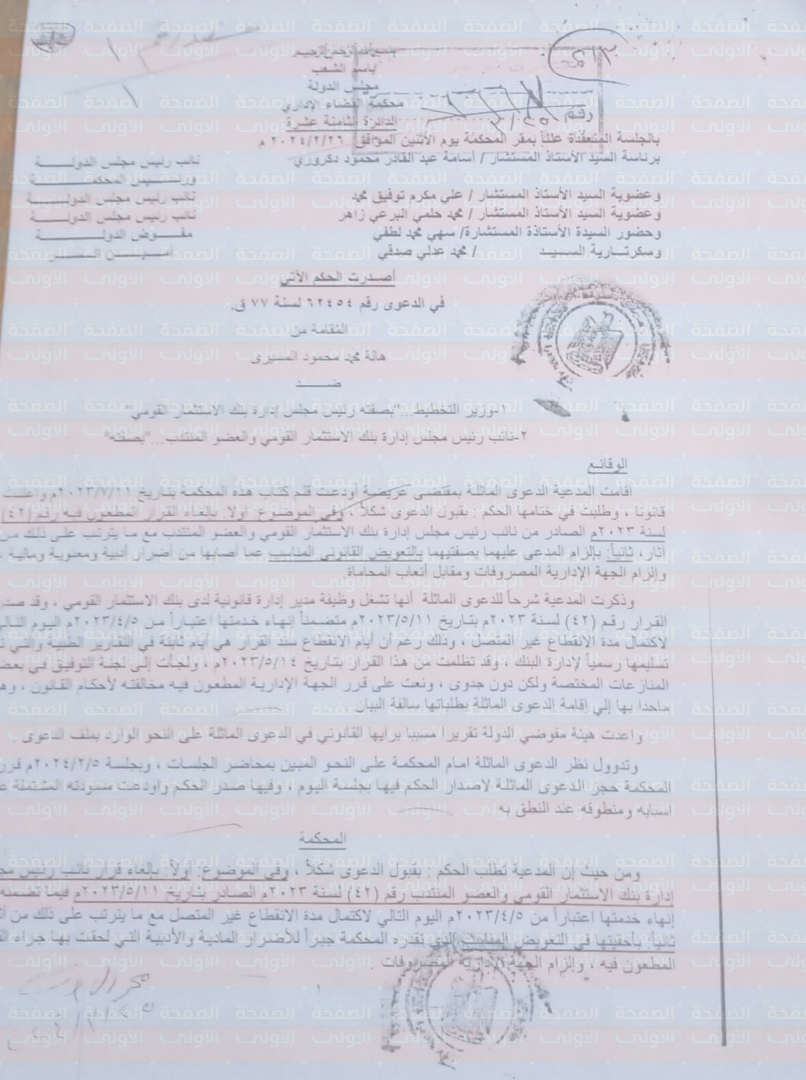 بسم الله الرحمن الرحيم
باسم الشعب
مجلس الدولة
محكمة القضاء الإداري
الدائرة الثامنة عشرة
بالجلسة المنعقدة علناً بمقر المحكمة يوم الأثنين الموافق ٢٠٢٤/٢/٢٦ م
برئاسة السيد الأستاذ المستشار / أسامة عبد القادر محمود دكروري نائب رئيس مجلس الدولة
ورئيس المحكمة
وعضوية السيد الأستاذ المستشار / علي مكرم توفيق محمد نائب رئيس مجلس الدولة
وعضوية السيد الأستاذ المستشار / محمد حلمي البرعي زاهر نائب رئيس مجلس الدولة
وحضور السيدة الأستاذة المستشارة/ سهي محمد لطفي مفوض الدولة
وسكرتارية السيد / محمد عدلي صدقي أمين السر
أصدرت الحكم الآتي
في الدعوى رقم ٦٢٤٥٤ لسنة ٧٧ ق.
المقامة من
هالة محمد محمود
ضد
١-وزير التخطيط..."بصفته رئيس مجلس إدارة بنك الاستثمار القومي"
٢-نائب رئيس مجلس إدارة بنك الاستثمار القومي والعضو المنتدب..."بصفته"
الوقائع
أقامت المدعية الدعوى الماثلة بمقتضى عريضة أودعت قلم كتاب هذه المحكمة بتاريخ ٢٠٢٣/٧/١١م واعلنت
قانونا ، وطلبت في ختامها الحكم : بقبول الدعوى شكلاً ، وفي الموضوع: اولاً: بالغاء القرار المطعون فيه رقم (٤٢)
لسنة ٢٠٢٣م الصادر من نائب رئيس مجلس إدارة بنك الاستثمار القومي والعضو المنتدب مع ما يترتب على ذلك من
آثار، ثانياً: بإلزام المدعي عليهما بصفتيهما بالتعويض القانوني المناسب عما أصابها من أضرار أدبية ومعنوية ومالية
وإلزام الجهة الإدارية المصروفات ومقابل أتعاب المحاماة.
وذكرت المدعية شرحاً للدعوى الماثلة أنها تشغل وظيفة مدير إدارة قانونية لدى بنك الاستثمار القومي ، وقد صدر
القرار رقم (٤٢) لسنة ٢٠٢٣م بتاريخ ٢٠٢٣/٥/١١م متضمناً إنهاء خدمتها اعتباراً من ٢٠٢٣/٤/٥م اليوم التالي
لاكتمال مدة الانقطاع غير المتصل ، وذلك رغم أن أيام الانقطاع سند القرار هي أيام ثابتة في التقارير الطبية والتي
تسليمها رسمياً لإدارة البنك ، وقد تظلمت من هذا القرار بتاريخ ٢٠٢٣/٥/١٤م ، ولجأت إلى لجنة التوفيق في بعض
المنازعات المختصة ولكن دون جدوى ، ونعت على قرر الجهة الإدارية المطعون فيه مخالفته لأحكام القانون ،
ماحدا بها إلي إقامة الدعوى الماثلة بطلباتها سالفة البيان .
واعدت هيئة مفوضي الدولة تقريرا مسببا برايها القانوني في الدعوى الماثلة على النحو الوارد بملف الدعوى .
وتدوول نظر الدعوى الماثلة امام المحكمة على النحو المبين بمحاضر الجلسات ، وبجلسة ٢٠٢٤/٢/٥م قررت
المحكمة حجز الدعوى الماثلة لاصدار الحكم فيها بجلسة اليوم ، وفيها صدر الحكم واودعت مسودته المشتملة
اسبابه ومنطوقه عند النطق به .
المحكمة
ومن حيث إن المدعية تطلب الحكم : بقبول الدعوى شكلاً ، وفي الموضوع: اولاً: بالغاء قرار نائب رئيس
إدارة بنك الاستثمار القومي والعضو المنتدب رقم (٤٢) لسنة ٢٠٢٣م الصادر بتاريخ ٢٠٢٣/٥/١١م فيما تضمنه
إنهاء خدمتها اعتباراً من ٢٠٢٣/٤/٥م اليوم التالي لاكتمال مدة الانقطاع غير المتصل مع ما يترتب على ذلك من
ثانياً: بأحقيتها في التعويض المناسب الذي تقدره المحكمة جبراً للأضرار المادية والأدبية التي لحقت بها جراء
المطعون فيه ، وإلزام الجهة الإدارية المصروفات .
الصفحة الأولى